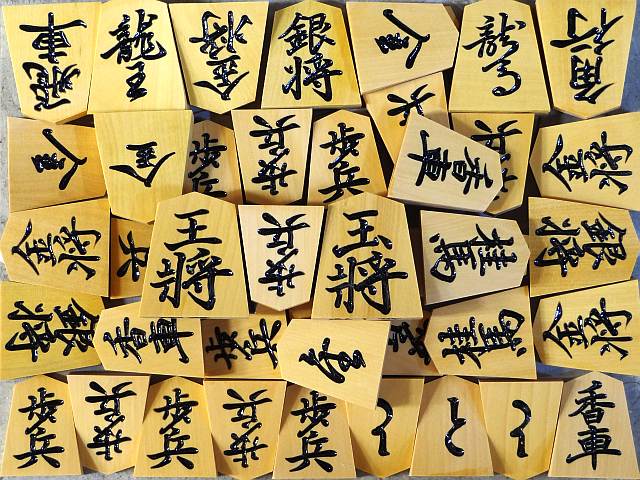 飛車
龍王
金将
銀将
龍馬
角行
金
歩兵
歩兵
歩兵
香車
金将
金将
王将
歩兵
玉将
桂馬
銀将
銀将
香車
歩兵
桂馬
金将
歩兵
歩兵
歩兵
歩兵
歩兵
と
と
と
香車